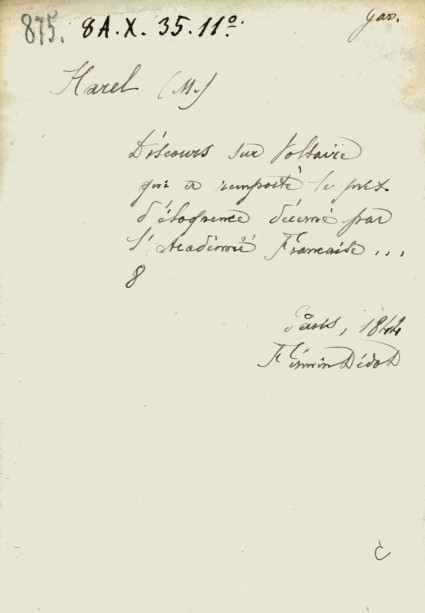 875. 8 A. X. 35. 11º.
Harel (M.)
Discours sur Voltaire
qui a remporté le prix
d'éloquence décerné par
l'Académie Française ...
8
Paris, 1844
Firmin Didot
č